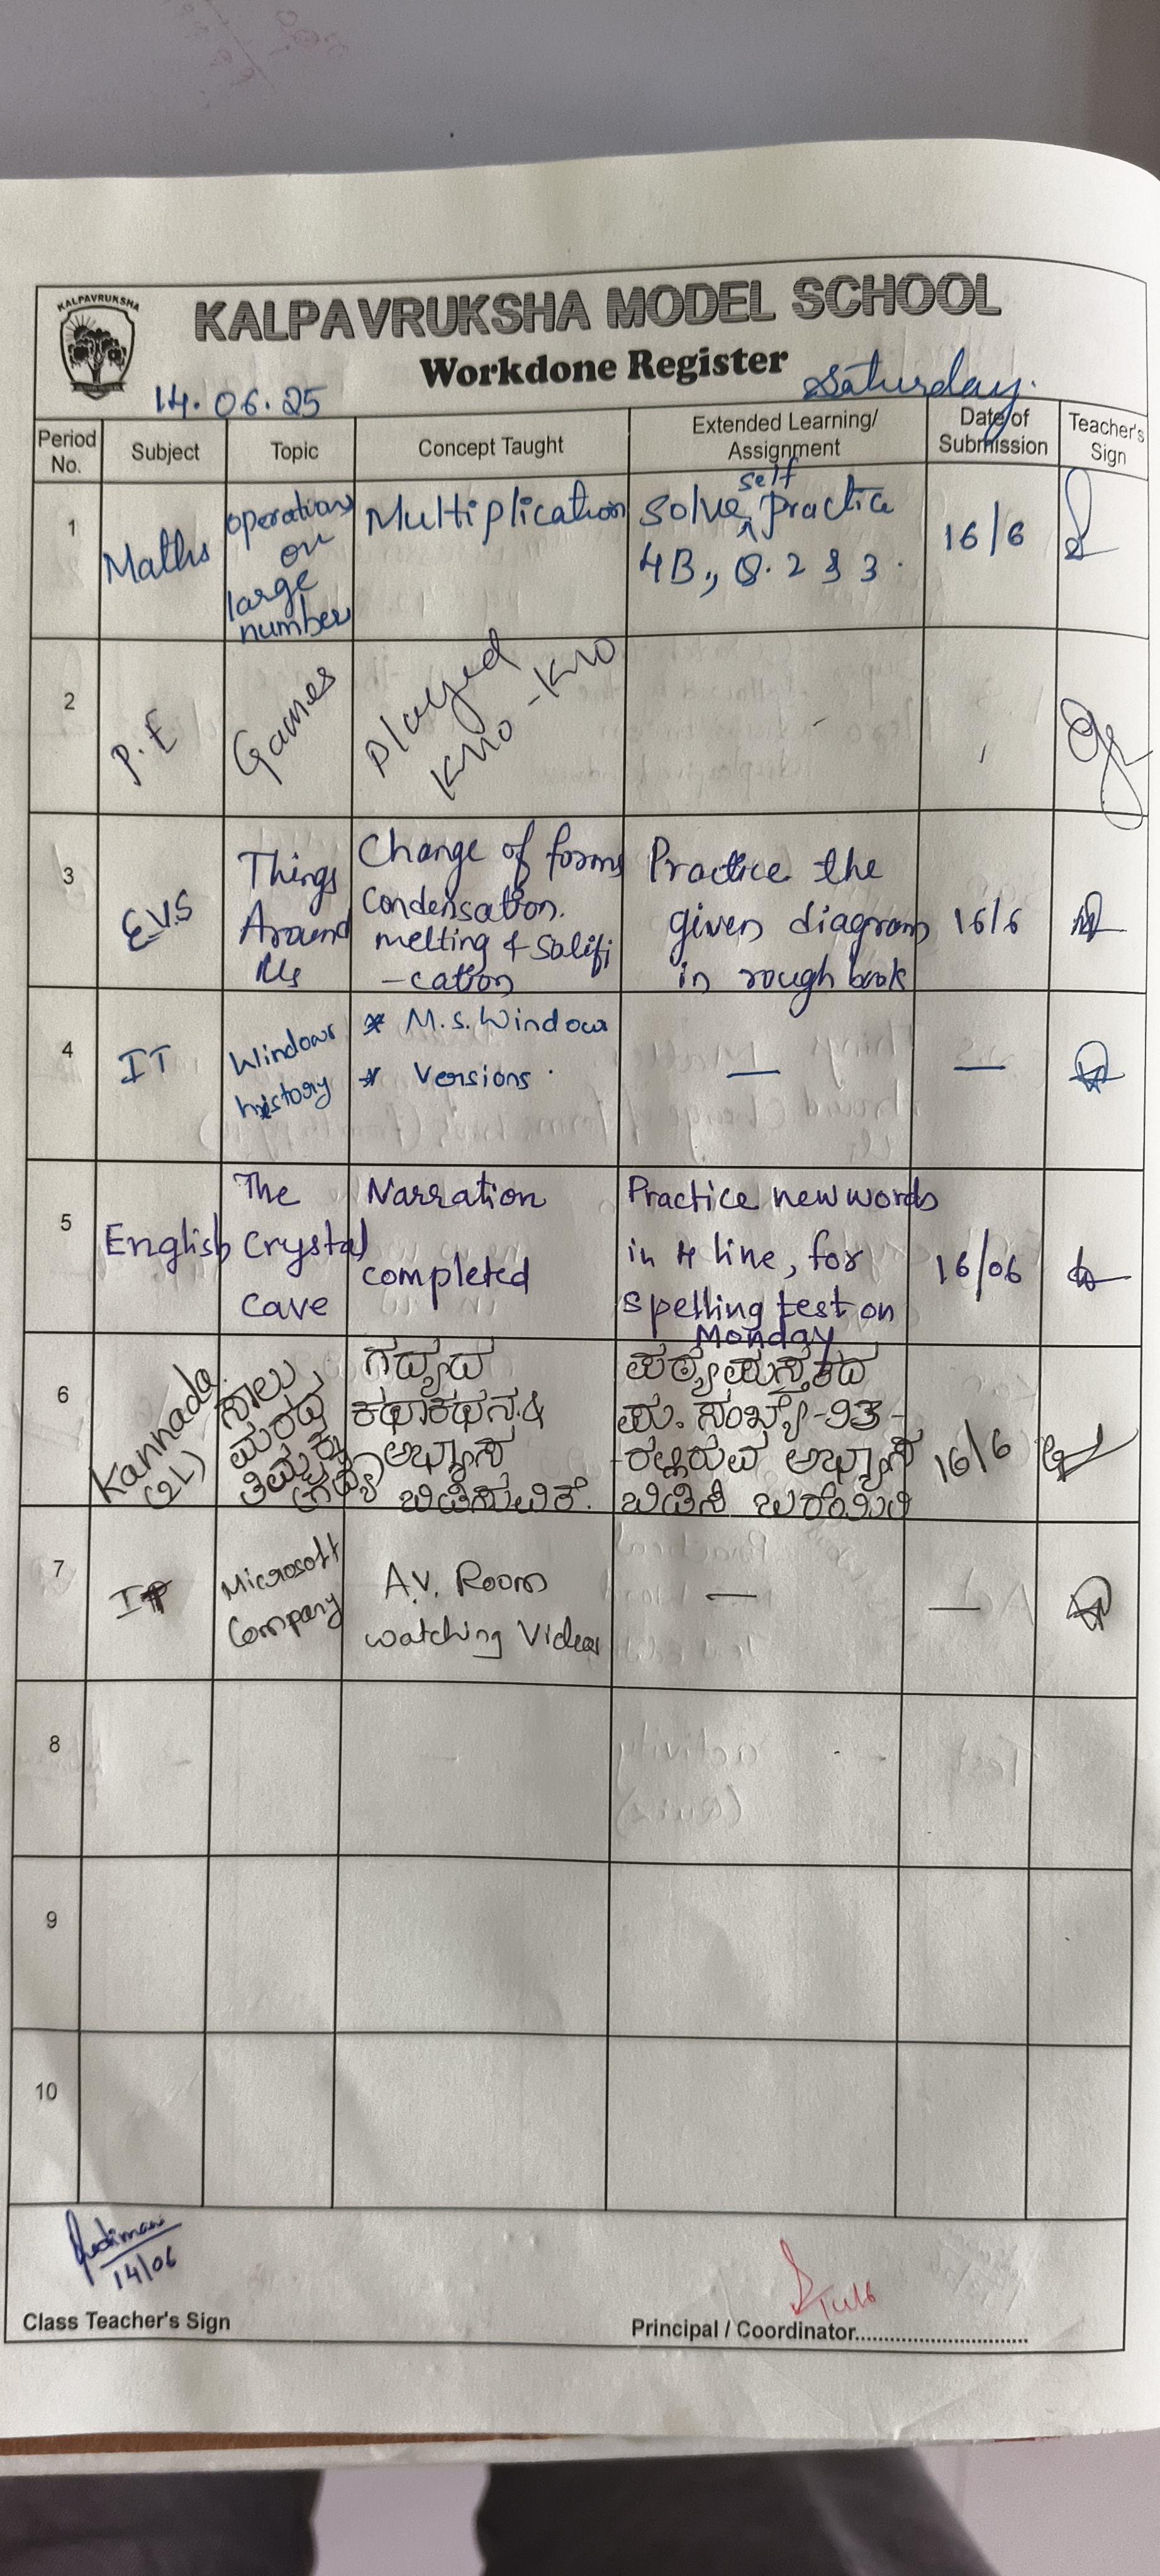 KALPAVRUKSHA
KALPAVRUKSHA MODEL SCHOOL
Workdone Register
14.06.25
Saturday.
Period No.
Subject
Topic
Concept Taught
Extended Learning/ Assignment
Date of Submission
Teacher's Sign
1
Maths
operations
on
large
number
Multiplication
Solve self practice
4B., Q. 2 & 3.
16/6
2
P.E
Games
Played
Kho-Kho
3
E.V.S
Things
Around
Us
Change of forms
Condensation.
melting & Solifi
-cation
Practice the
given diagram
in rough book
16/6
4
IT
Windows
history
* M.S. Window
* Versions.
—
—
5
English
The
Crystal
cave
Narration
completed
Practice new words
in 4 line, for
spelling test on
Monday
16/06
6
Kannada
(2L)
ಸಾಲು
ಮರದ
ತಿಮ್ಮಕ್ಕ
(ಗದ್ಯ)
ಗದ್ಯದ
ಕಥಾಕಥನ &
ಅಭ್ಯಾಸ
ಬಿಡಿಸುವಿಕೆ.
ಪಠ್ಯಪುಸ್ತಕದ
ಪು. ಸಂಖ್ಯೆ-93-
ರಲ್ಲಿರುವ ಅಭ್ಯಾಸ
ಬಿಡಿಸಿ ಬರೆಯಿರಿ
16/6
7
IT
Microsoft
Company
A.V. Room
watching Videos
—
—
8
9
10
14/06
Class Teacher's Sign
Principal / Coordinator..............................